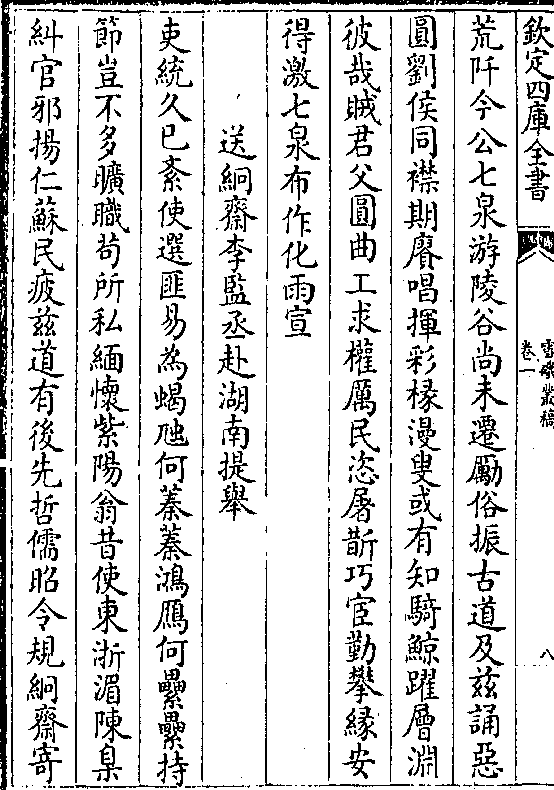 欽定四庫全書
雪磯叢稿
卷一
八
荒阡今公七泉游陵谷尚未遷勵俗振古道及兹誦惡
圓劉侯同襟期賡唱揮彩椽漫叟或有知騎鯨躍層淵
彼哉賊君父圓曲工求權厲民恣屠斮巧宦勤攀緣安
得激七泉布作化雨宣
送絅齋李監丞赴湖南提舉
吏統久已紊使選匪易為蝎虺何蓁蓁鴻鴈何纍纍持
節豈不多曠職茍所私緬懷紫陽翁昔使東浙湄陳臬
糾官邪揚仁蘇民疲兹道有後先哲儒昭令規絅齋寄